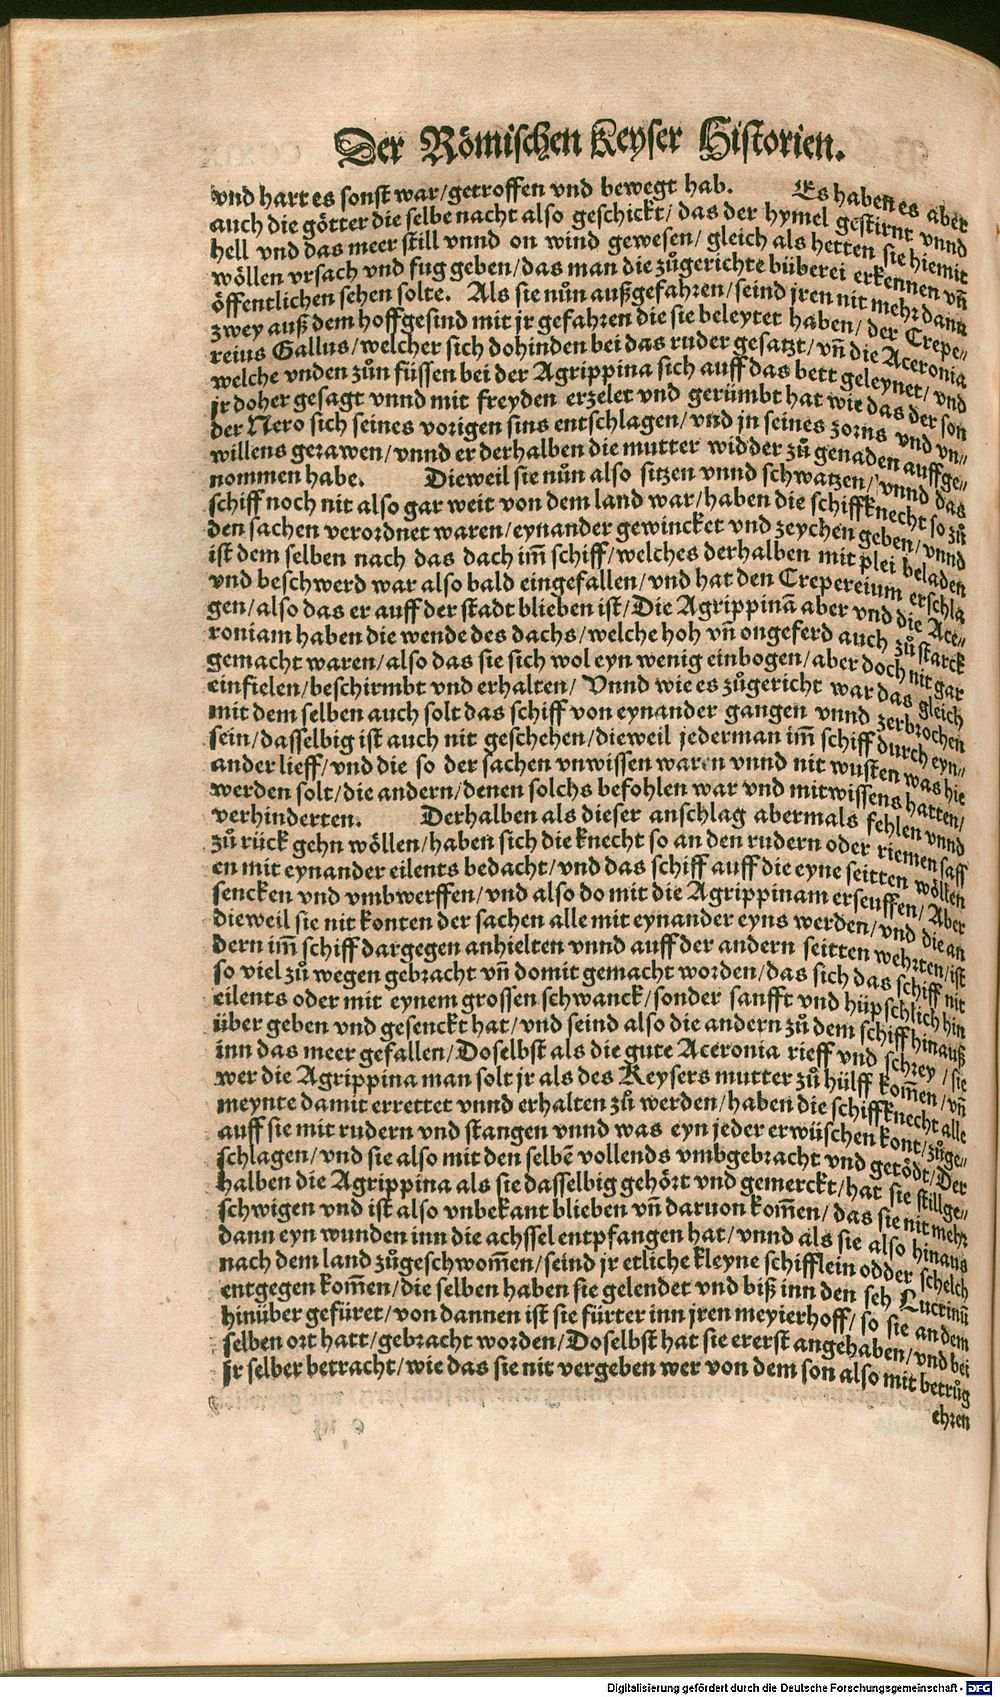 Der Römischen Keyser Historien.
vnd hart es sonst war/getroffen vnd bewegt hab. Es haben es aber
auch die götter die selbe nacht also geschickt/ das der hymel gestirnt vnnd
hell vnd das meer still vnnd on wind gewesen/ gleich als hetten sie hiemit
wöllen vrsach vnd fug geben/das man die zůgerichte büberei erkennen vñ
öffentlichen sehen solte. Als sie nůn außgefahren/seind jren nit mehr dann
zwey auß dem hoffgesind mit jr gefahren die sie beleytet haben/ der Crepe⸗
reius Gallus/welcher sich dohinden bei das ruder gesatzt/vñ die Aceronia
welche vnden zůn füssen bei der Agrippina sich auff das bett geleynet/ vnd
jr doher gesagt vnnd mit freyden erzelet vnd gerümbt hat wie das der son
der Nero sich seines vorigen sins entschlagen/ vnd jn seines zorns vnd vn⸗
willens gerawen/vnnd er derhalben die mutter widder zů genaden auffge⸗
nommen habe. Dieweil sie nůn also sitzen vnnd schwatzen/ vnnd das
schiff noch nit also gar weit von dem land war/haben die schiffknecht so zů
den sachen verordnet waren/eynander gewincket vnd zeychen geben/ vnnd
ist dem selben nach das dach im̃ schiff/welches derhalben mit plei beladen
vnd beschwerd war also bald eingefallen/vnd hat den Crepereium erschla
gen/also das er auff der stadt blieben ist/Die Agrippinã aber vnd die Ace⸗
roniam haben die wende des dachs/welche hoh vñ ongeferd auch zů starck
gemacht waren/also das sie sich wol eyn wenig einbogen/aber doch nit gar
einfielen/beschirmbt vnd erhalten/ Vnnd wie es zůgericht war das gleich
mit dem selben auch solt das schiff von eynander gangen vnnd zerbrochen
sein/dasselbig ist auch nit geschehen/dieweil jederman im̃ schiff durch eyn⸗
ander lieff/vnd die so der sachen vnwissen waren vnnd nit wusten was hie
werden solt/die andern/denen solchs befohlen war vnd mitwissens hatten/
verhinderten. Derhalben als dieser anschlag abermals fehlen vnnd
zů rück gehn wöllen/haben sich die knecht so an den rudern oder riemen saff
en mit eynander eilents bedacht/vnd das schiff auff die eyne seitten wöllen
sencken vnd vmbwerffen/vnd also do mit die Agrippinam erseuffen/ Aber
dieweil sie nit konten der sachen alle mit eynander eyns werden/vnd die an
dern im̃ schiff dargegen anhielten vnnd auff der andern seitten wehrten/ist
so viel zů wegen gebracht vñ domit gemacht worden/das sich das schiff nit
eilents oder mit eynem grossen schwanck/sonder sanfft vnd hüpschlich hin
über geben vnd gesenckt hat/vnd seind also die andern zů dem schiff hinauß
inn das meer gefallen/Doselbst als die gute Aceronia rieff vnd schrey /sie
wer die Agrippina man solt jr als des Keysers mutter zů hülff kom̃en/vñ
meynte damit errettet vnnd erhalten zů werden/haben die schiffknecht alle
auff sie mit rudern vnd stangen vnnd was eyn jeder erwüschen kont/zůge⸗
schlagen/vnd sie also mit den selbẽ vollends vmbgebracht vnd getödt/Der
halben die Agrippina als sie dasselbig gehört vnd gemerckt/hat sie stillge⸗
schwigen vnd ist also vnbekant blieben vñ daruon kom̃en/ das sie nit mehr
dann eyn wunden inn die achssel entpfangen hat/vnnd als sie also hinaus
nach dem land zůgeschwom̃en/seind jr etliche kleyne schifflein odder schelch
entgegen kom̃en/die selben haben sie gelendet vnd biß inn den seh Lucrinũ
hinüber gefüret/von dannen ist sie fürter inn jren meyierhoff/ so sie an dem
selben ort hatt/gebracht worden/Doselbst hat sie ererst angehaben/vnd bei
jr selber betracht/wie das sie nit vergeben wer von dem son also mit betrůg
ehren
Digitalisierung gefördert durch die Deutsche Forschungsgemeinschaft - DFG